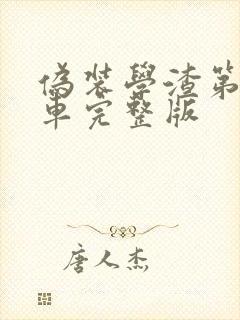 偽装學渣第
車完整版
唐人杰